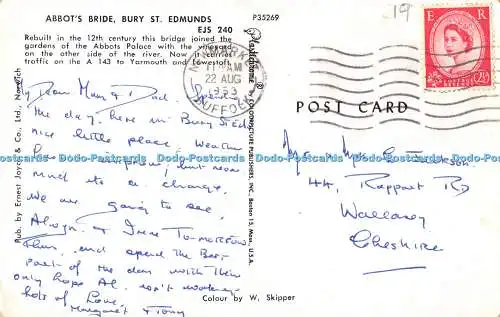 ABBOT'S BRIDE, BURY ST. EDMUNDS
P35269
EJS 240
Rebuilt in the 12th century this bridge joined the
gardens of the Abbots Palace with the vineyard
on the other side of the river. Now it carries
traffic on the A 143 to Yarmouth and Lowestoft.
19
E R
NEWMARKET
AM
22 AUG
1953
SUFFOLK
My Dear Mum & Dad.
The day here in Bury St Ed
nice little place, weather
but now
much to a change.
We are going to see
& Irene Tomorrow
Then, and spend the Best
part of the day with them
only hope Al isn't
lots of Love,
Margaret & Tony
POST CARD
Mr & Mrs
44, Rappart Rd
Wallasey
Cheshire
Pub. by Ernest Joyce & Co., Ltd., Norwich
Plastichrome ® by COLOURPICTURE PUBLISHERS, INC. Boston 15, Mass., U.S.A.
Colour by W. Skipper
Dodo-Postcards Dodo-Postcards Dodo-Postcards Dodo-Postcards Dodo-Postcards Dodo-Postcards